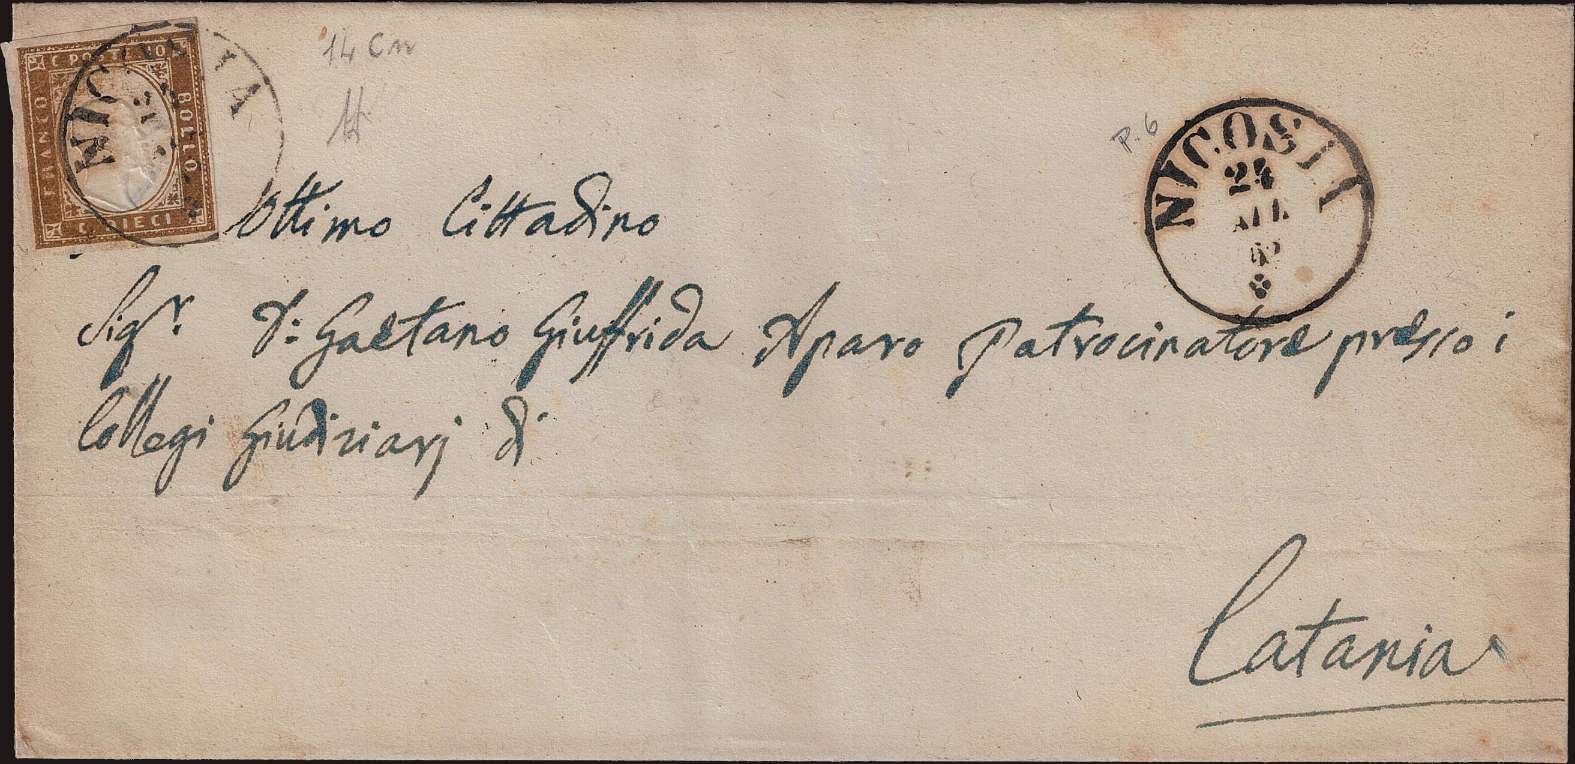 C POSTE 10
FRANCO
BOLLO
C DIECI
NICOSIA
14 Cn
P. 6
NICOSIA
24
62
Ottimo Cittadino
Sigr. D: Gaetano Giuffrida Aparo Patrocinatore presso i
Collegi Giudiziarj di
Catania